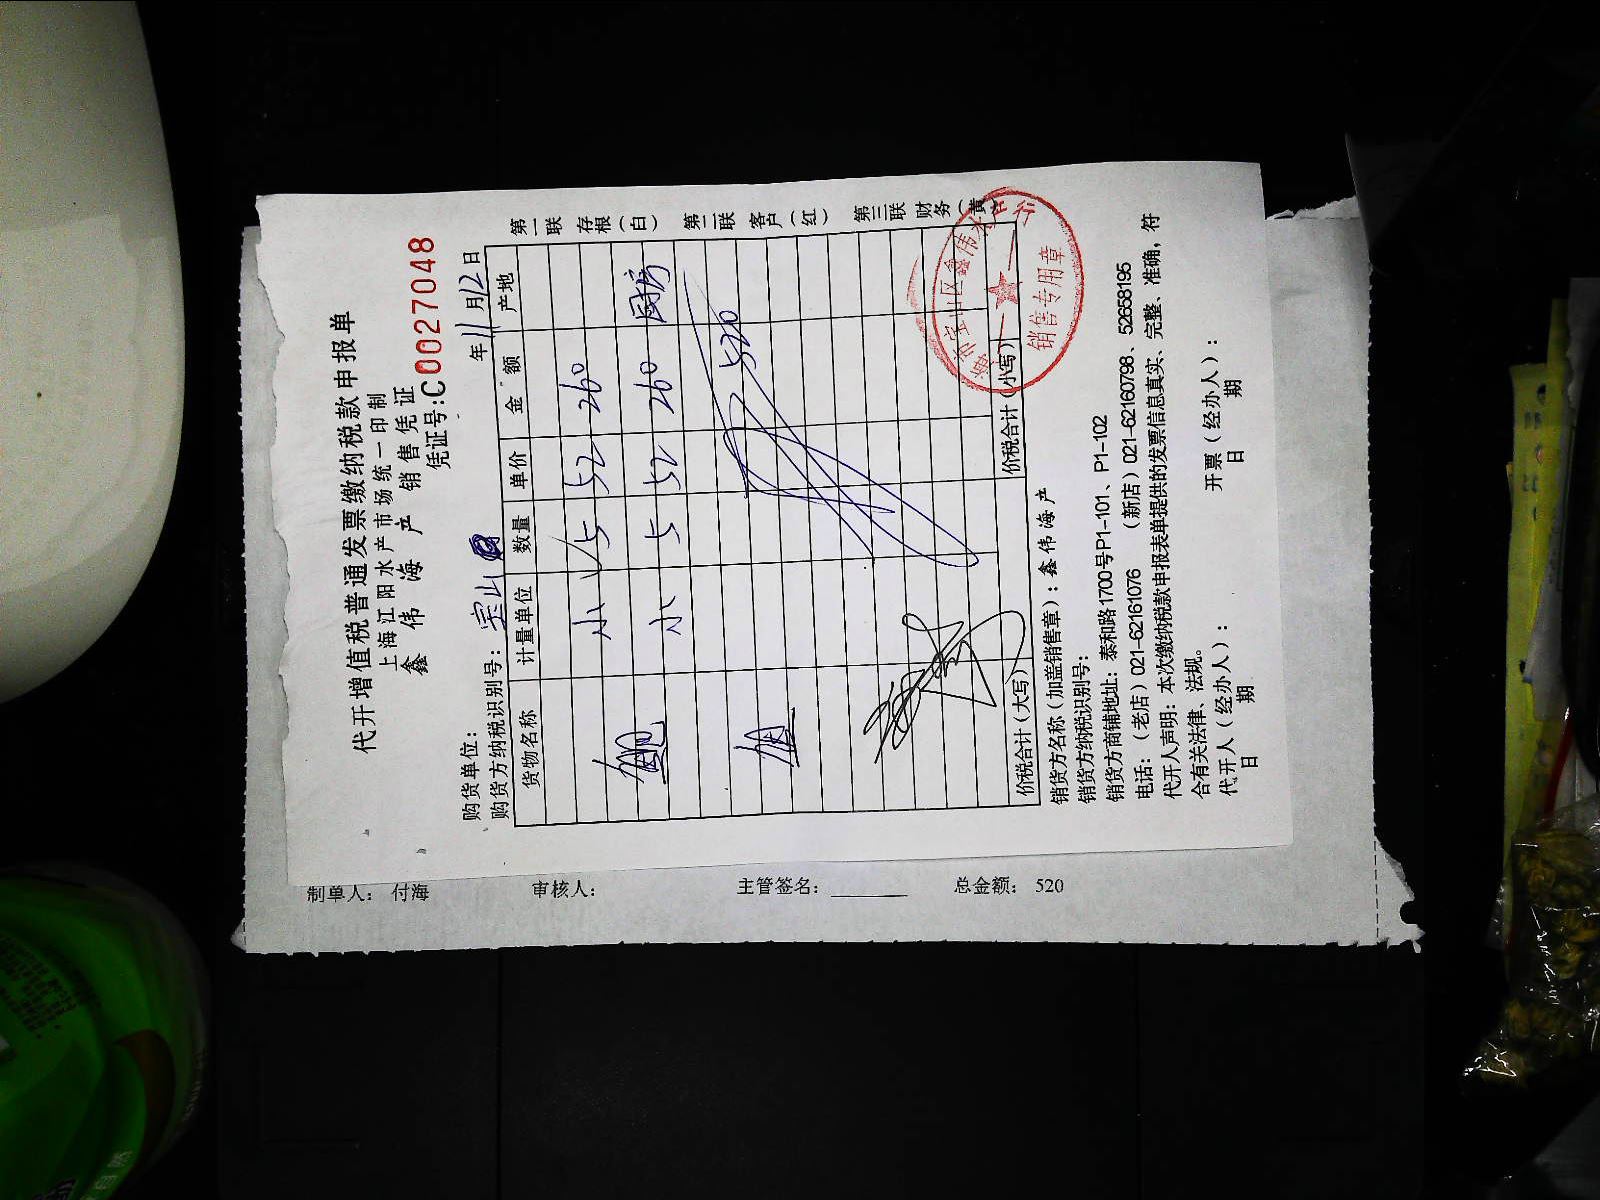 代开增值税普通发票缴纳税款申报单
上海江阳水产市场统一印制
鑫伟海产 销售凭证
凭证号:C00027048
购货单位: 宝山
年11月12日
购货方纳税识别号:
货物名称 计量单位 数量 单价 金额 产地
小 5 52 260
小 5 52 260 厨房
520
价税合计(大写) 价税合计(小写)
第一联 存根(白) 第二联 客户(红) 第三联 财务(黄)
销货方名称(加盖销售章):鑫伟海产
销货方纳税识别号:
销货方商铺地址:泰和路1700号P1-101、P1-102
电话:(老店)021-62161076 (新店)021-62160798、52658195
代开人声明:本次缴纳税款申报表单提供的发票信息真实、完整、准确,符
合有关法律、法规。
代开人(经办人): 开票(经办人):
日期 日期
宝山区鑫伟水产行
销售专用章
制单人: 付海 审核人: 主管签名: 总金额: 520